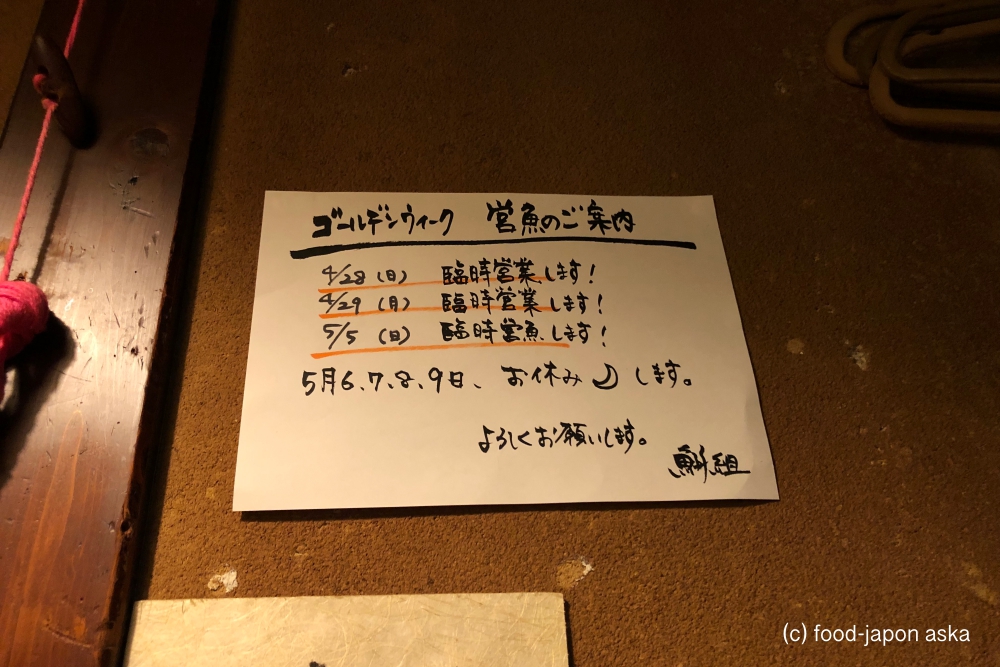 ゴールデンウィーク 営魚のご案内
4/28(日) 臨時営業します!
4/29(月) 臨時営業します!
5/5(日) 臨時営魚します!
5月6、7、8、9日、お休みします。
よろしくお願いします。
魚斤組
(c) food-japon aska